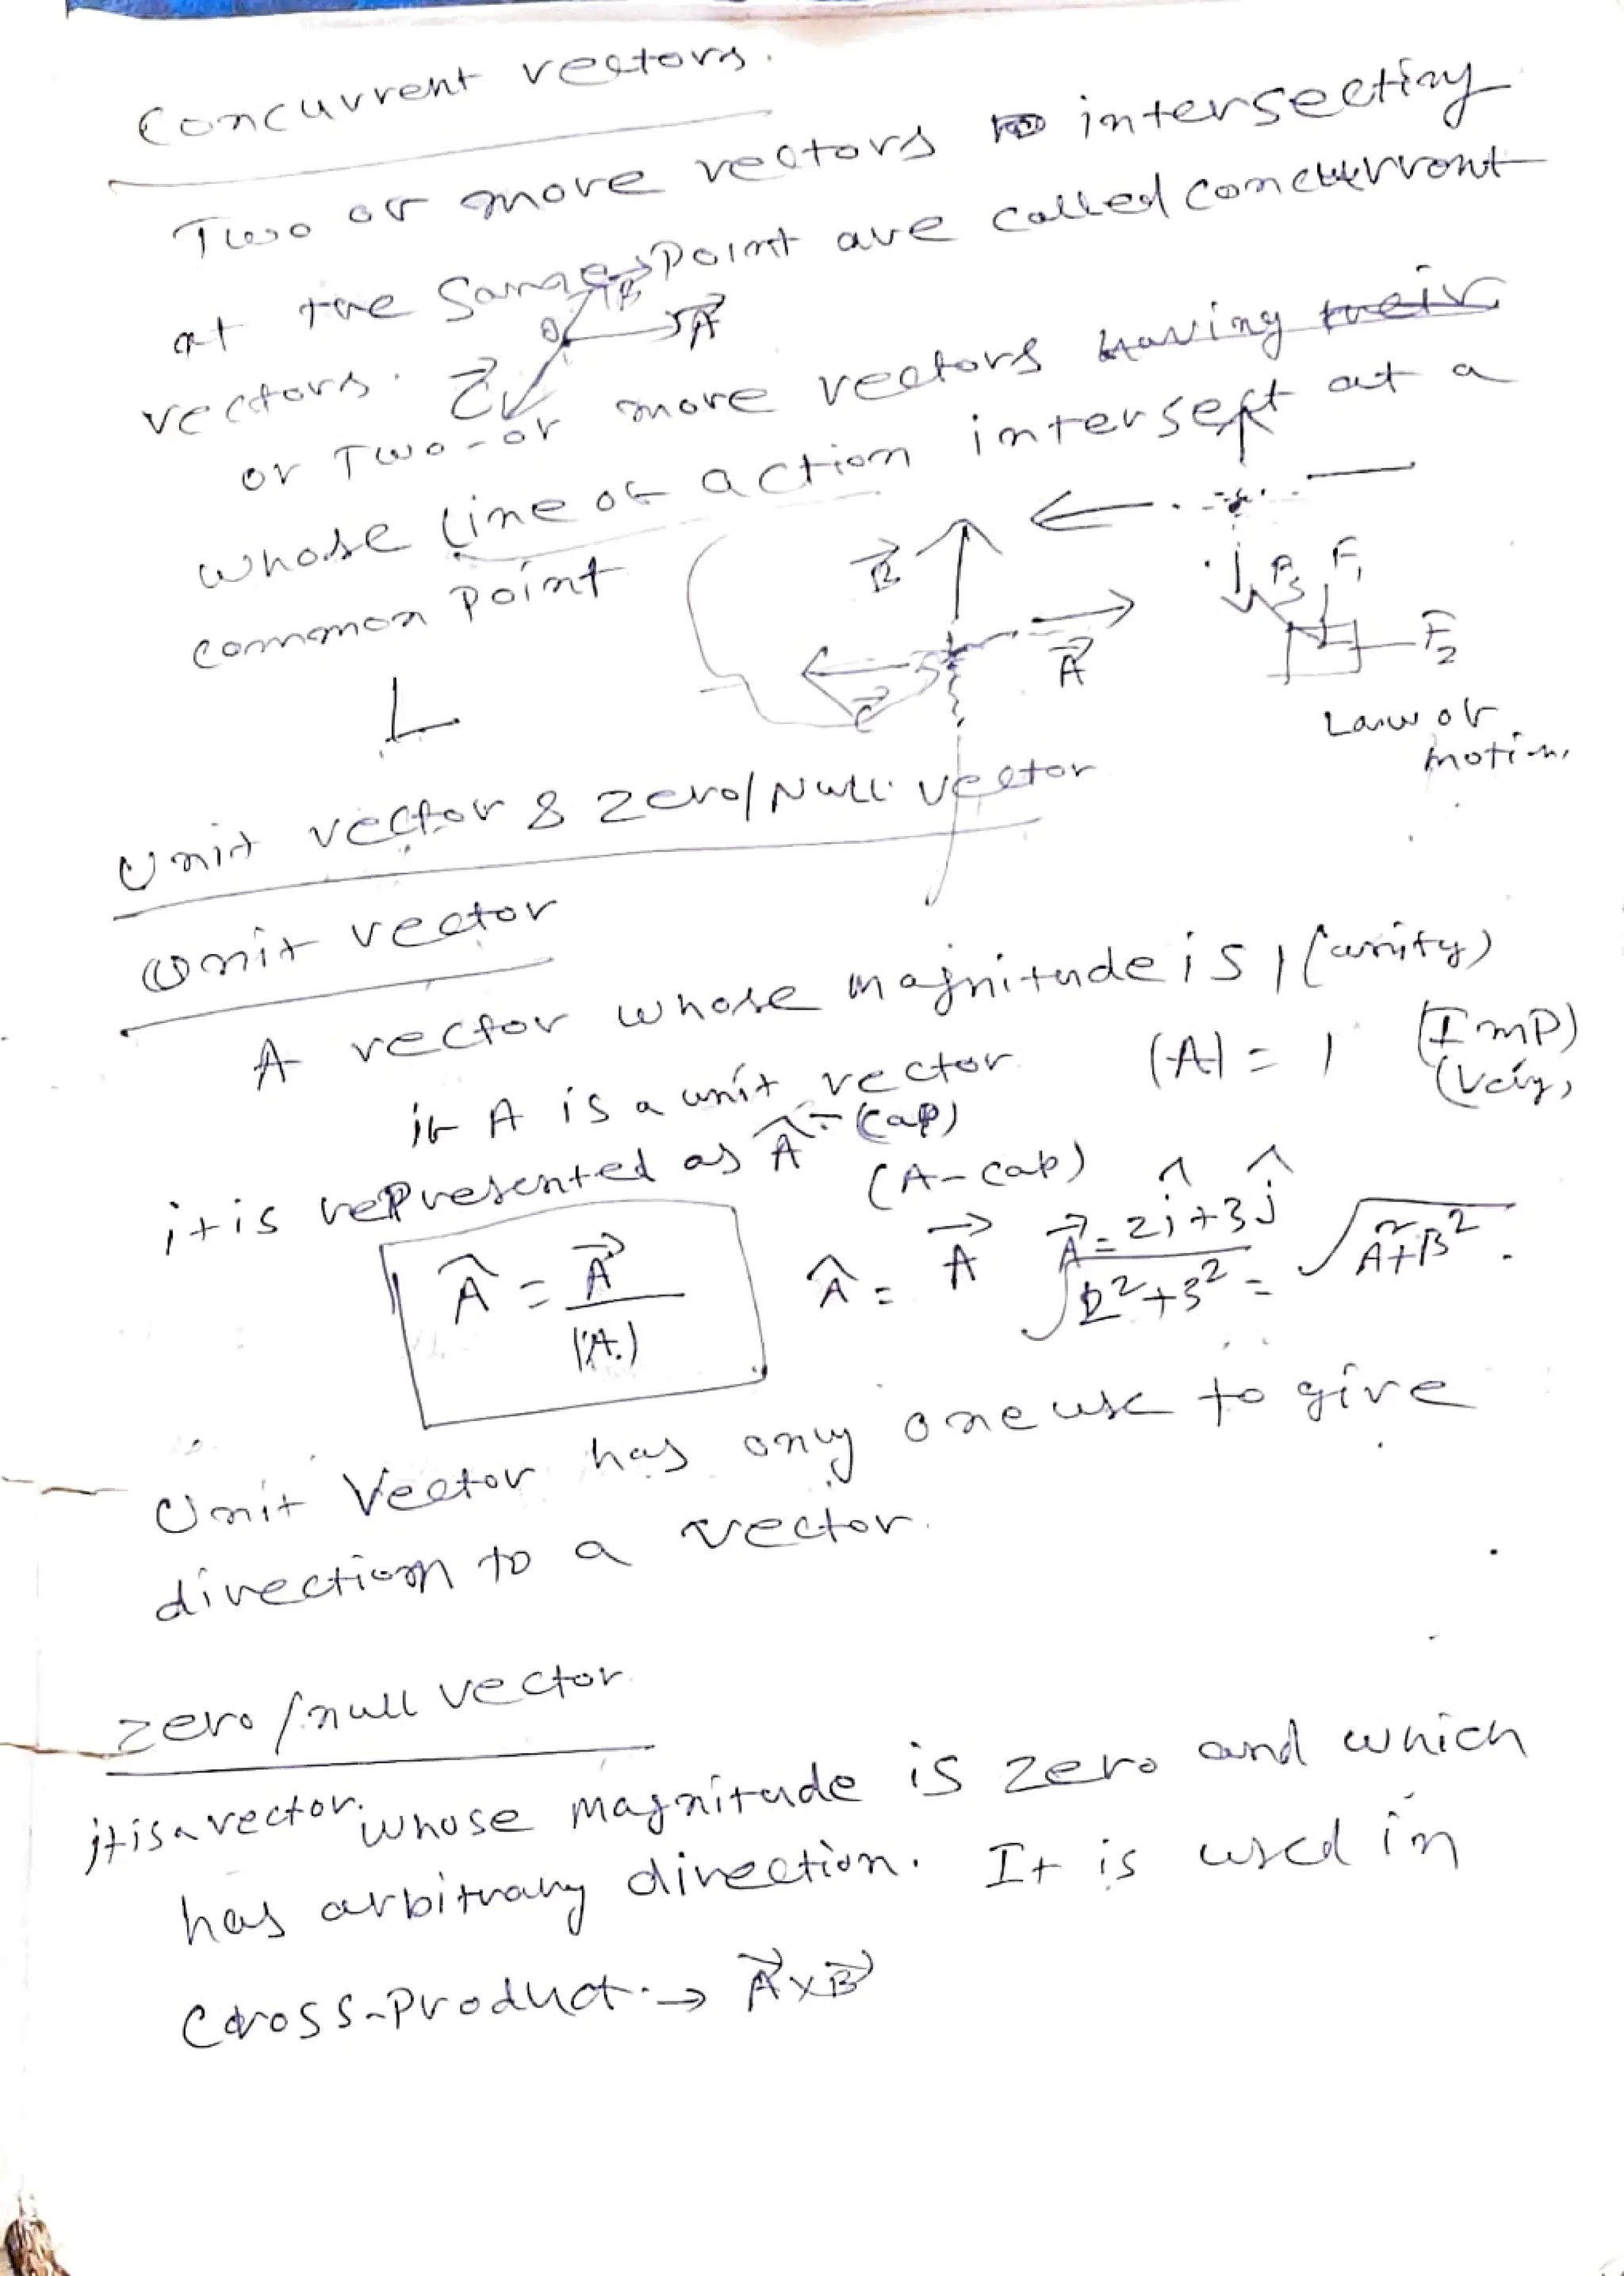 Concurrent vectors.
Two or more vectors intersecting
at the same point are called concurrent
vectors.
B A
O
C
or Two or more vectors having their
whose line of action intersept at a
common point
B
A
C
F3 F1
F2
Law of
motion,
Unit vector & zero/Null vector
Unit vector
A vector whose magnitude is 1 (unity)
if A is a unit vector |A| = 1 (Imp)
(Very,
it is represented as Â - (cap)
(A-cap)
Â = A⃗ / |A|
Â = A⃗ A⃗ = 2î+3ĵ / √2²+3² = √A²+B².
Unit Vector has only one use to give
direction to a vector.
zero/null vector
it is a vector whose magnitude is zero and which
has arbitrary direction. It is used in
Cross-Product → A⃗×B⃗